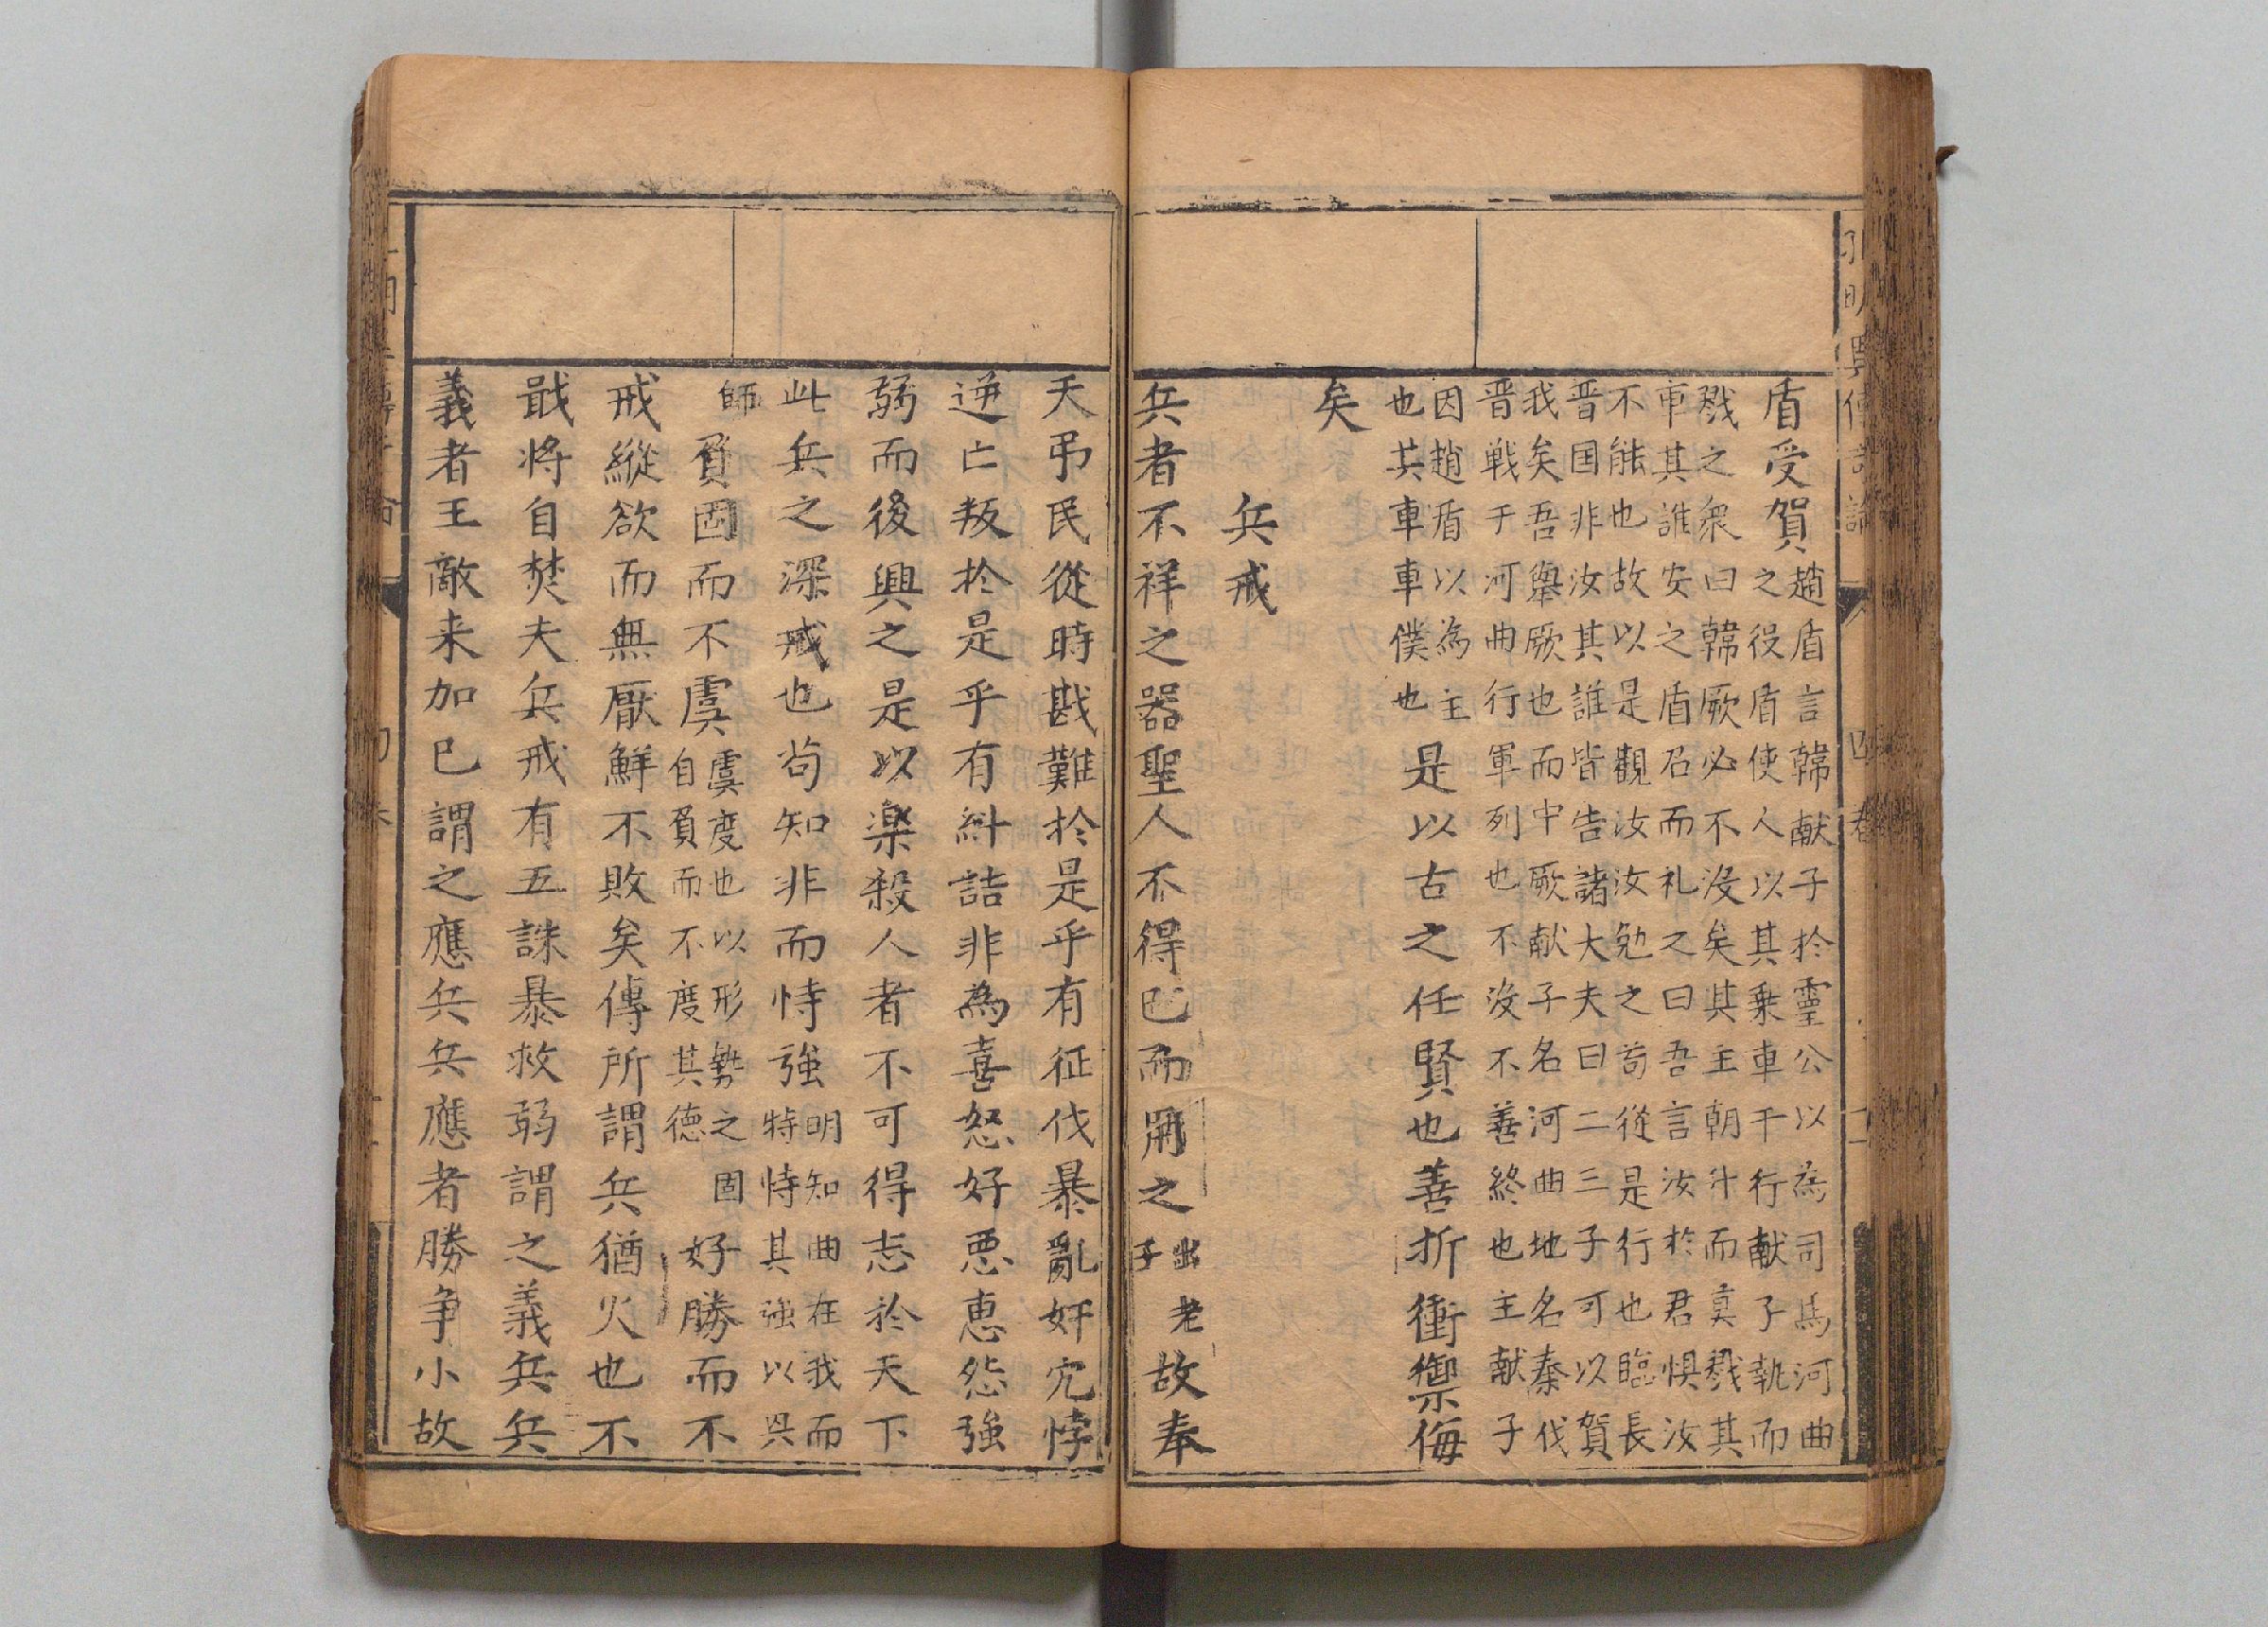 盾受賀
趙盾言韓献子於靈公以為司馬河曲
之役盾使人以其乗車干行献子執而
戮之衆曰韓厥必不没矣其主朝升而莫戮其
車其誰安之盾召而礼之曰吾言汝於君惧汝
不能也故以是觀汝汝勉之苟從是行也臨長
晋国非汝其誰皆告諸大夫曰二三子可以賀
我矣吾舉厥也而中厥献子名河曲地名秦伐
晋戦于河曲行軍列也不没不善終也主献子
因趙盾以為主
也其車車僕也
是以古之任賢也善折衝禦侮
矣
兵戒
兵者不祥之器聖人不得已而用之
出老
子
故奉
天弔民從時戡難於是乎有征伐暴亂奸宄悖
逆亡叛於是乎有糾詰非為喜怒好悪恵怨強
弱而後興之是以楽殺人者不可得志於天下
此兵之深戒也苟知非而恃強
明知曲在我而
特恃其強以興
師
負固而不虞
虞度也以形勢之固
自負而不度其德
好勝而不
戒縦欲而無厭鮮不敗矣傳所謂兵猶火也不
戢将自焚夫兵戒有五誅暴救弱謂之義兵兵
義者王敵来加已謂之應兵兵應者勝争小故